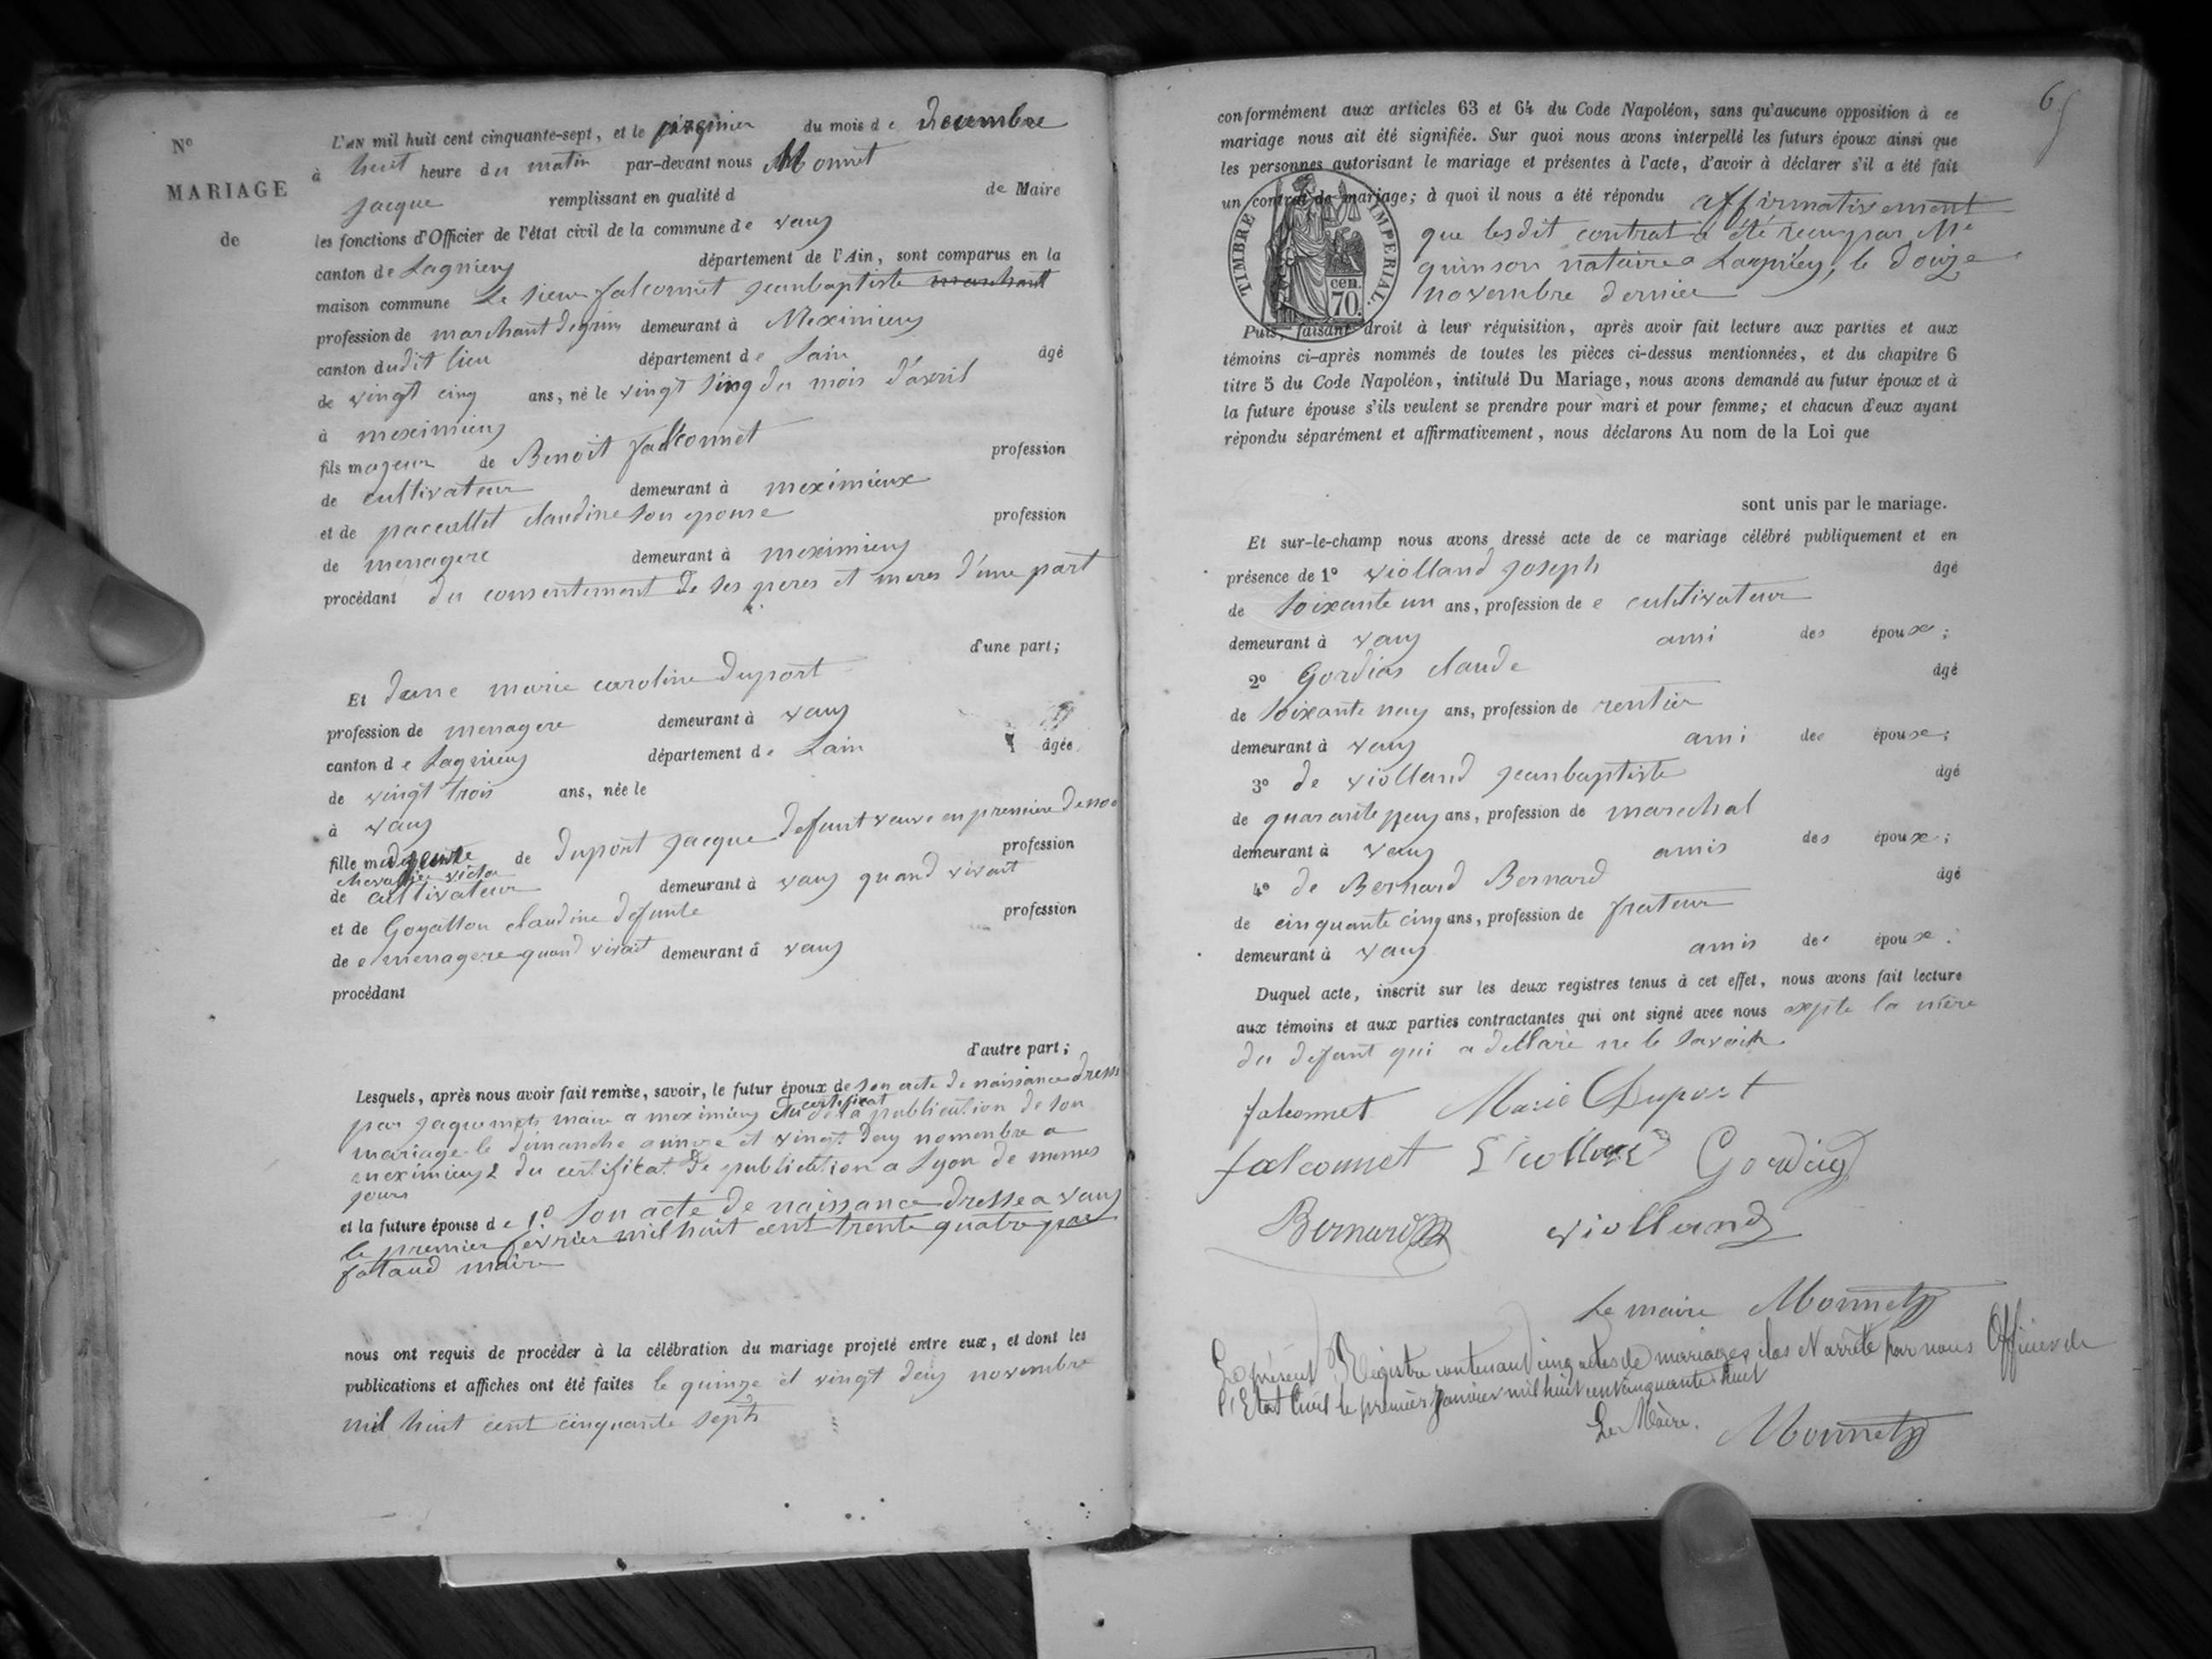 N°
MARIAGE
de
L'AN mil huit cent cinquante-sept, et le premier du mois de decembre
à huit heure du matin par-devant nous Monnet
jacque remplissant en qualité d de Maire
les fonctions d'Officier de l'état civil de la commune de vaux
canton de Lagnieux département de l'Ain, sont comparus en la
maison commune Le sieur falconnet jeanbaptiste marchant
profession de marchant demeurant à Meximieux
canton dudit lieu département de Lain âgé
de vingt cinq ans, né le vingt sinq du mois d'avril
à meximieux
fils mageur de Benoit falconnet profession
de cultivateur demeurant à meximieux
et de claudine son epouse profession
de menagere demeurant à meximieux
procédant du consentement de ses peres et meres d'une part
d'une part;
Et dame marie caroline Duport
profession de menagere demeurant à vaux
canton de Lagnieux département de Lain âgée
de vingt trois ans, née le
à vaux
fille de duport jacque defunt veuve en premiere de noce
chevallier victor profession
de cultivateur demeurant à vaux quand vivait
et de Goyatton claudine defunte profession
de e menagere quand vivait demeurant à vaux
procédant
d'autre part;
Lesquels, après nous avoir fait remise, savoir, le futur époux de son acte de naissance dressé
par jaquemet maire a meximieux du certificat de la publication de son
mariage le dimanche quinze et vingt deux nomenbre a
meximieux 2 du certificat de publication a Lyon de memes
jours
et la future épouse de 1° son acte de naissance dresse a vaux
le premier fevrier mil huit cent trente quatre par
maire
nous ont requis de procéder à la célébration du mariage projeté entre eux, et dont les
publications et affiches ont été faites le quinze et vingt deux novembre
mil huit cent cinquante sept
65
conformément aux articles 63 et 64 du Code Napoléon, sans qu'aucune opposition à ce
mariage nous ait été signifiée. Sur quoi nous avons interpellé les futurs époux ainsi que
les personnes autorisant le mariage et présentes à l'acte, d'avoir à déclarer s'il a été fait
un contrat de mariage; à quoi il nous a été répondu affirmativement
que lesdit contrat a été recu par Me
quinson notaire a Lagnieu, le douze
novembre dernier
TIMBRE IMPERIAL.
70 cen.
Puis, faisant droit à leur réquisition, après avoir fait lecture aux parties et aux
témoins ci-après nommés de toutes les pièces ci-dessus mentionnées, et du chapitre 6
titre 5 du Code Napoléon, intitulé Du Mariage, nous avons demandé au futur époux et à
la future épouse s'ils veulent se prendre pour mari et pour femme; et chacun d'eux ayant
répondu séparément et affirmativement, nous déclarons Au nom de la Loi que
sont unis par le mariage.
Et sur-le-champ nous avons dressé acte de ce mariage célébré publiquement et en
présence de 1° violland joseph âgé
de soixante un ans, profession de e cultivateur
demeurant à vaux ami des époux;
2° Gordias claude âgé
de soixante neuf ans, profession de rentier
demeurant à vaux ami des époux;
3° de violland jeanbaptiste âgé
de quarante neuf ans, profession de marechal
demeurant à vaux amis des époux;
4° de Bernard Bernard âgé
de cinquante cinq ans, profession de frateur
demeurant à vaux amis des époux.
Duquel acte, inscrit sur les deux registres tenus à cet effet, nous avons fait lecture
aux témoins et aux parties contractantes qui ont signé avec nous la mère
du defunt qui a dellaré ne le savoir
falconnet Marie Duport
falconnet Violland
Bernard violland
Le maire Monnet
Le présent Régistre contenant cinq actes de mariages clos et arrêté par nous Officier de
l'Etat Civil le premier janvier mil huit cent cinquante huit
Le Maire. Monnet